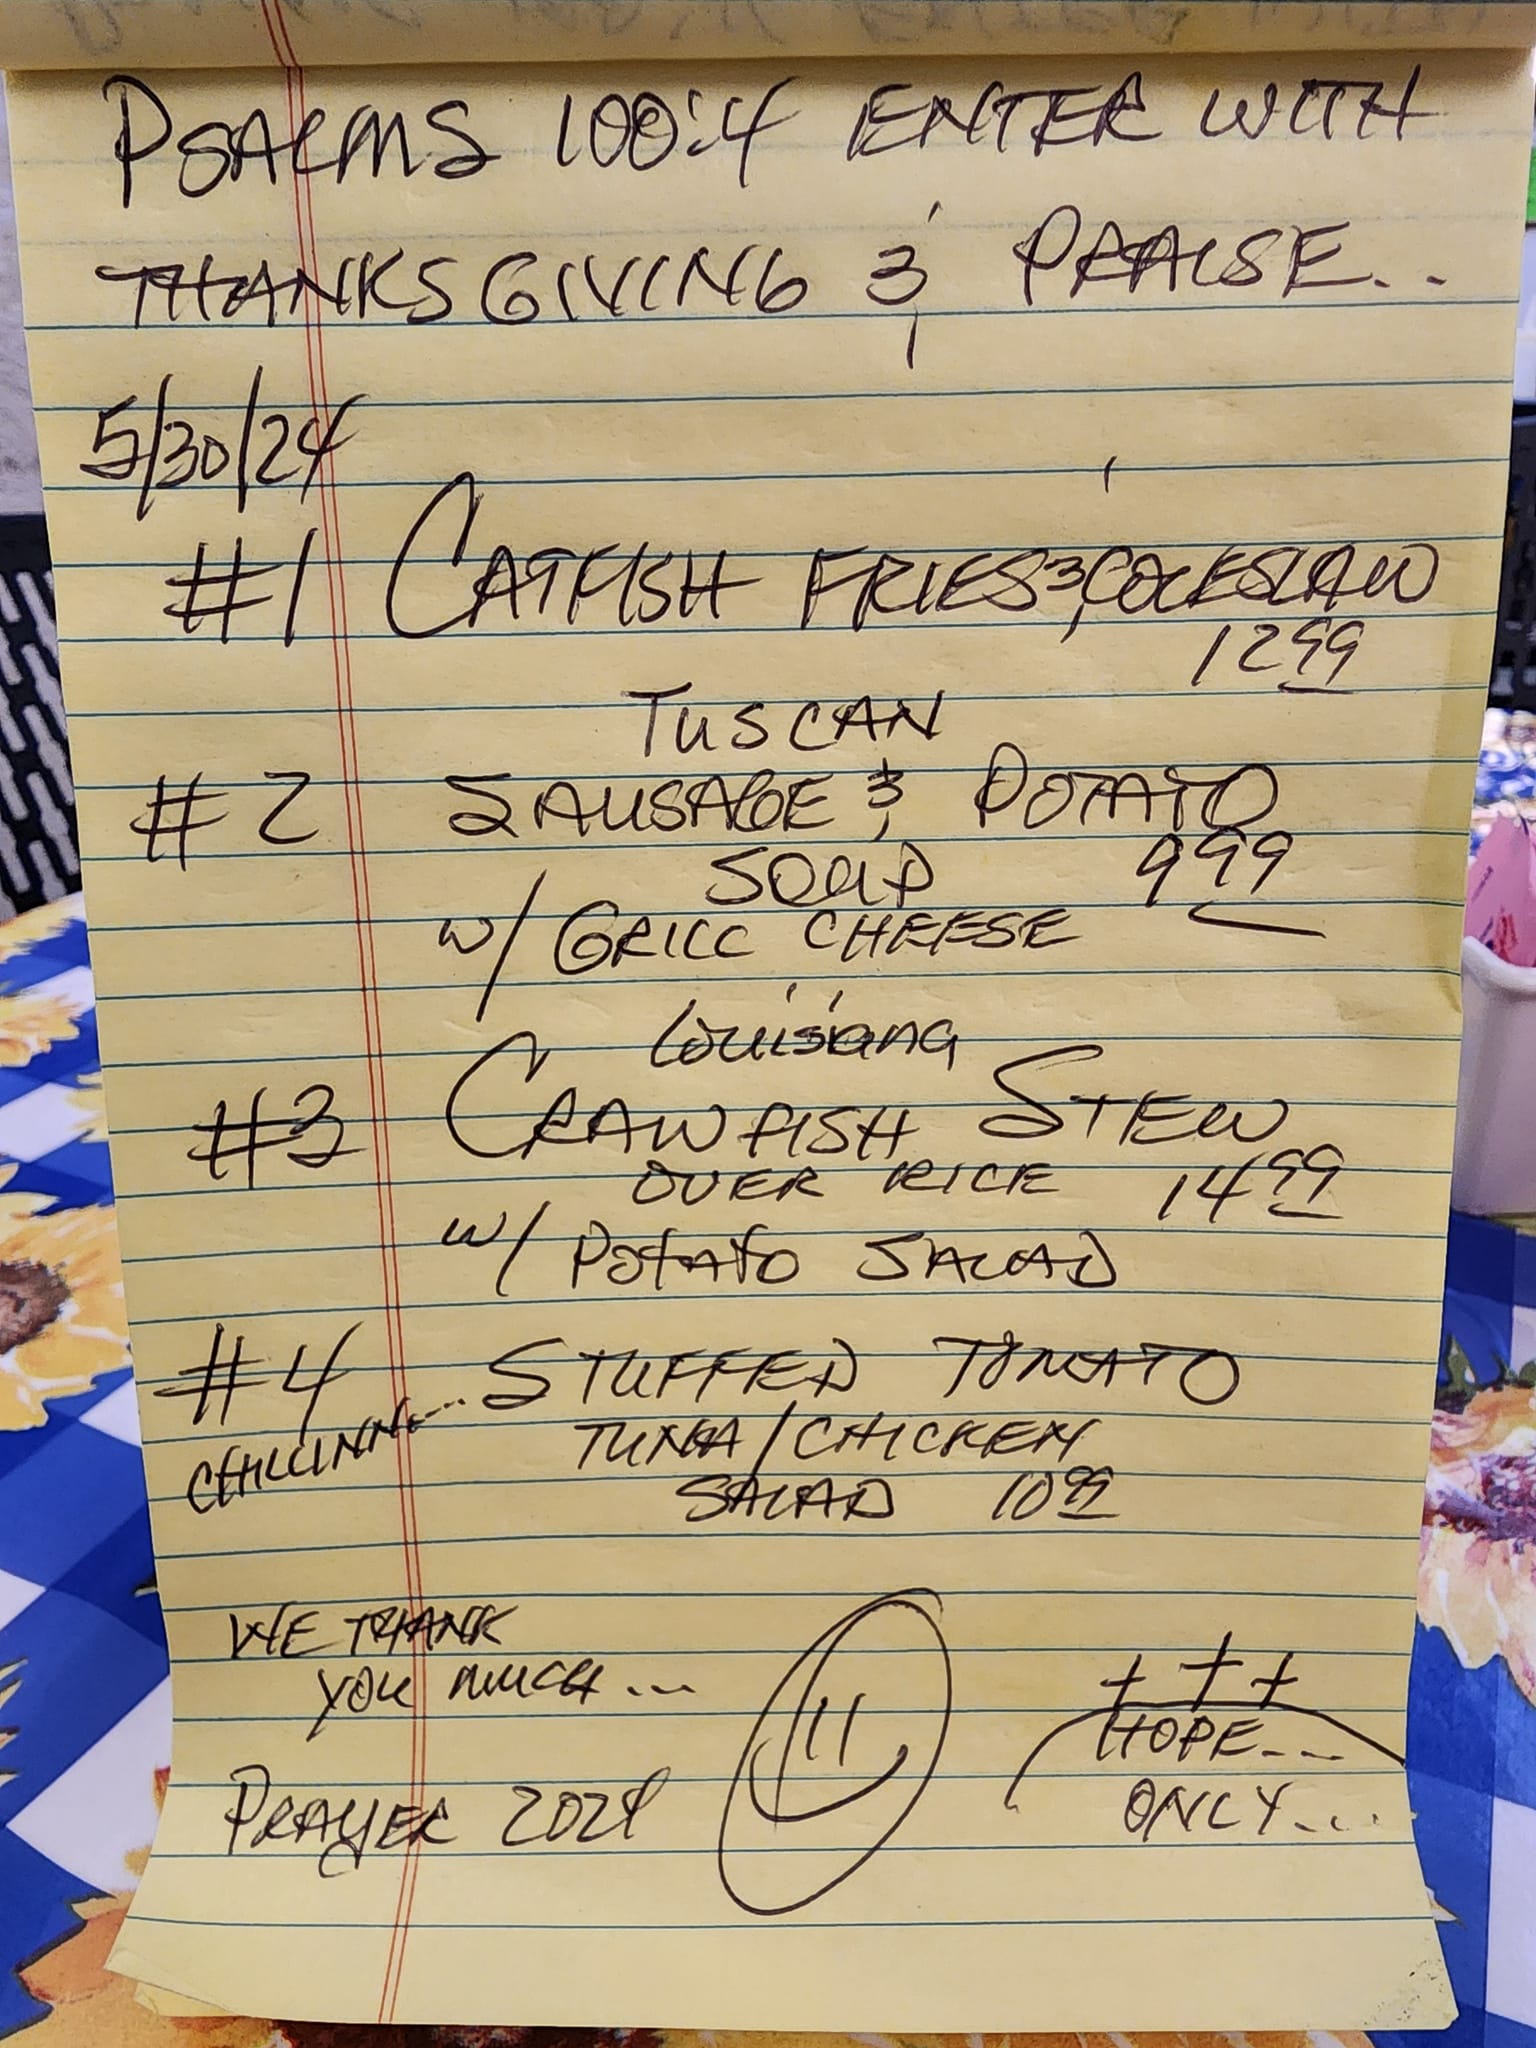 PSALMS 100:4 ENTER WITH
THANKSGIVING & PRAISE..
5/30/24
#1 CATFISH FRIES & COLESLAW
12 99
TUSCAN
#2 SAUSAGE & POTATO
SOUP 9 99
W/ GRILL CHEESE
Louisiana
#3 CRAWFISH STEW
OVER RICE 14 99
W/ POTATO SALAD
#4 STUFFED TOMATO
CHILLINN... TUNA/CHICKEN
SALAD 10 99
WE THANK
YOU MUCH...
HOPE...
PRAYER 2024
ONLY...